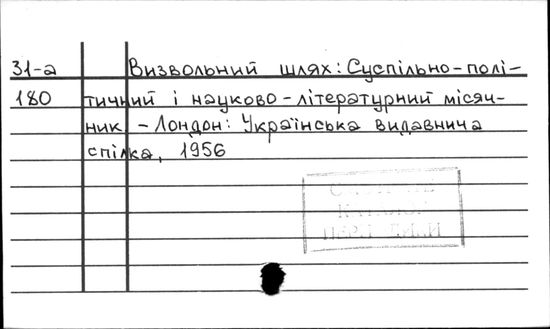 31-а Визвольний шлях: Суспільно-полі-
180 тичний і науково-літературний місяч-
ник. - Лондон: Українська видавнича
спілка, 1956